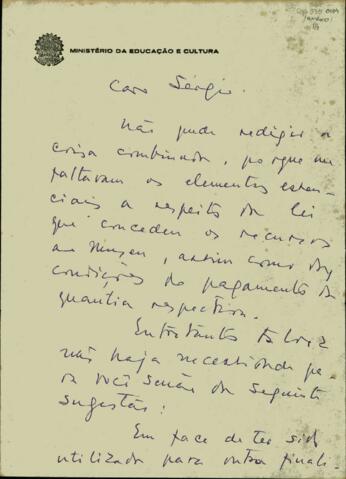 MINISTÉRIO DA EDUCAÇÃO E CULTURA
Caro Sérgio.
Não pude redigir a
coisa combinada, porque me
faltavam os elementos essen-
ciais a respeito da lei
que concedeu os recursos
ao Museu, assim como das
condições do pagamento da
quantia respectiva.
Entretanto talvez
não haja necessidade pa-
ra você senão da seguinte
sugestão:
Em face de ter sido
utilizada para outra finali-